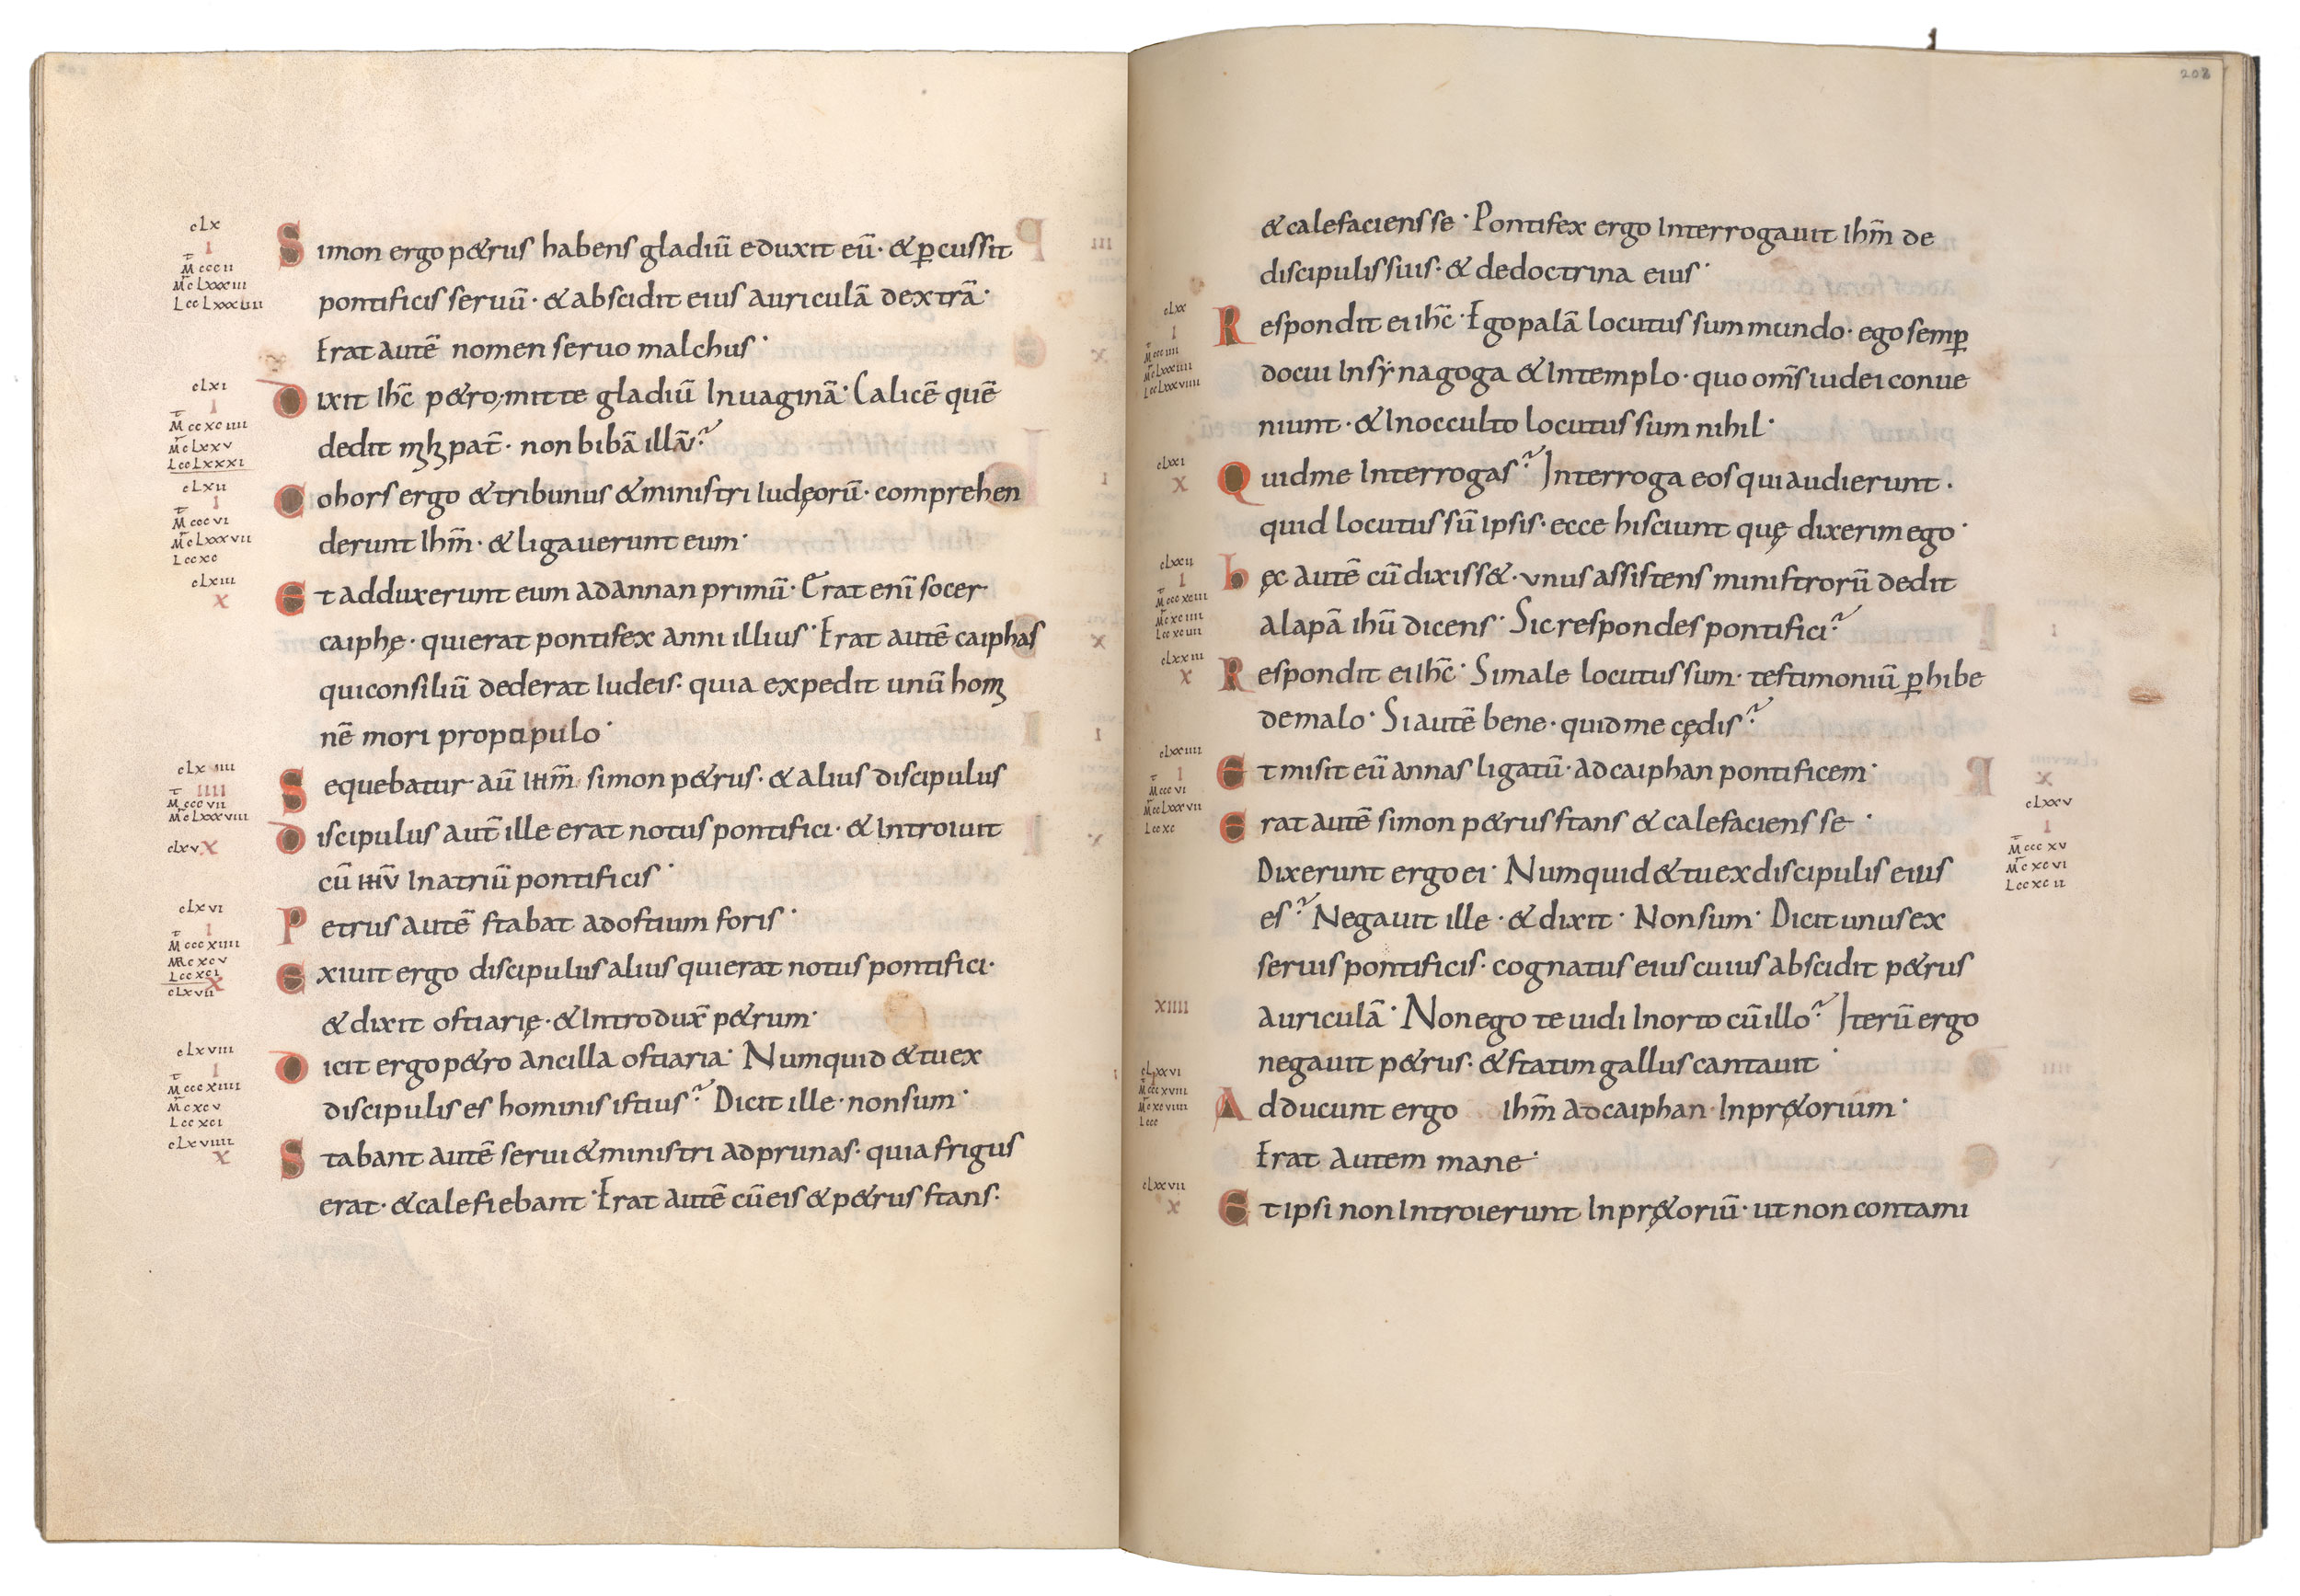 cLx
I
M cccii
Mr cLxxxiii
L ccLxxxiiii
Simon ergo p&rus habens gladiū eduxit eū· & ꝑcussit
pontificis seruū· & abscidit eius auriculā dextrā·
Erat autē nomen seruo malchus·
cLxi
I
M ccxciiii
Mr cLxxv
L ccLxxxi
Dixit ihc̄ p&ro, mitte gladiū in uaginā· Calicē quē
dedit mihi pat̄· non bibā illū?
cLxii
I
M cccvi
Mr cLxxxvii
L ccxc
Cohors ergo & tribunus & ministri iudęorū· comprehen
derunt ihm̄· & ligauerunt eum·
cLxiii
x
Et adduxerunt eum ad annan primū· Erat enī socer
caiphę· qui erat pontifex anni illius· Erat autē caiphas
qui consiliū dederat iudeis· quia expedit unū homi
nē mori prop̄t populo·
cLxiiii
IIII
M cccvii
Mr cLxxxviii
Sequebatur aū ihm̄ simon p&rus· & alius discipulus
cLxv x
Discipulus aut̄ ille erat notus pontifici· & introiuit
cū ihū in atriū pontificis·
cLxvi
I
M cccxiiii
MR cxcv
L ccxci
Petrus autē stabat ad ostium foris·
x
cLxvii
Exiuit ergo discipulus alius qui erat notus pontifici·
& dixit ostiarię· & introdux̄ p&rum·
cLxviii
I
M cccxiiii
Mr cxcv
L ccxci
Dicit ergo p&ro ancilla ostiaria· Numquid & tu ex
discipulis es hominis istius? Dicit ille· non sum·
cLxviiii
x
Stabant autē serui & ministri ad prunas· quia frigus
erat· & calefiebant· Erat autē cū eis & p&rus stans·
208
& calefaciens se· Pontifex ergo interrogauit ihm̄ de
discipulis suis· & de doctrina eius·
cLxx
I
M ccciiii
Mr cLxxxiiii
L ccLxxxviiii
Respondit ei ihc̄· Ego palā locutus sum mundo· ego semꝑ
docui in synagoga & in templo· quo om̄s iudei conue
niunt· & in occulto locutus sum nihil·
cLxxi
x
Quid me interrogas? Interroga eos qui audierunt·
quid locutus sū ipsis· ecce hi sciunt quę dixerim ego·
cLxxii
I
M cccxciii
Mr cxciiii
L ccxciiii
hęc autē cū dixiss&· unus assistens ministrorū dedit
alapā ihū dicens· Sic respondes pontifici?
cLxxiii
x
Respondit ei ihc̄· Si male locutus sum· testimoniū ꝑhibe
de malo· Si autē bene· quid me cędis?
cLxxiiii
I
M cccvi
Mr ccLxxxvii
L ccxc
Et misit eū annas ligatū· ad caiphan pontificem·
Erat autē simon p&rus stans & calefaciens se·
cLxxv
I
M cccxv
Mr cxcvi
L ccxcii
Dixerunt ergo ei· Numquid & tu ex discipulis eius
es? Negauit ille· & dixit· Non sum· Dicit unus ex
seruis pontificis· cognatus eius cuius abscidit p&rus
xiiii
auriculā· Non ego te uidi in orto cū illo? Iterū ergo
negauit p&rus· & statim gallus cantauit·
cLxxvi
I
M cccxviii
Mr cxcviiii
L ccc
Adducunt ergo ihm̄ ad caiphan· in pr&̨orium·
Erat autem mane·
cLxxvii
x
Et ipsi non introierunt in pr&̨oriū· ut non contami